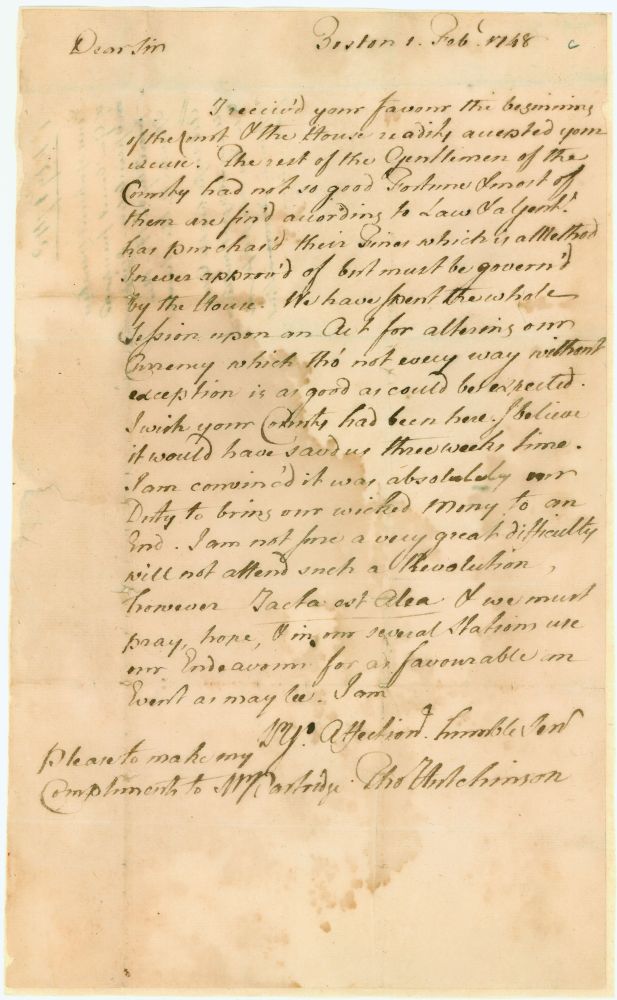 Dear Sir Boston 1. Feb.ʳ 1748
I receiv'd your favour the beginning
of the Court & the House readily accepted your
excuse. The rest of the Gentlemen of the
County had not so good Fortune & most of
them are fin'd according to Law & a Gent.ⁿ
has purchas'd their Fines which is a Method
I never approv'd of but must be govern'd
by the House. We have spent the whole
Session upon an Act for altering our
Currency which tho' not every way without
exception is as good as could be expected.
I wish your County had been here. I believe
it would have sav'd us three weeks time.
I am convinc'd it was absolutely our
Duty to bring our wicked Mony to an
End. I am not sure a very great difficulty
will not attend such a Revolution,
however Jacta est Alea & we must
pray, hope, & in our several Stations use
our Endeavours for as favourable an
Event as may be. I am
Sr Yr. Affectiond. humble Servt
Please to make my
Compliments to Mr Partridge. Tho Hutchinson